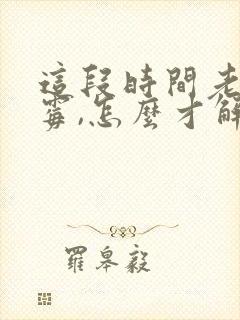 這段時間老
霉,怎麼才解
羅皋毅